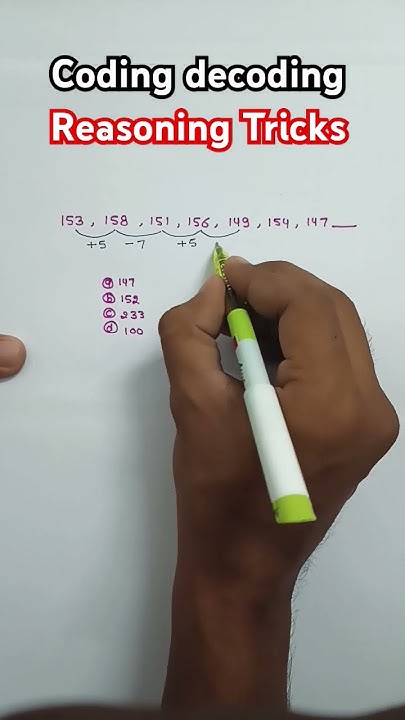 Coding decoding
Reasoning Tricks
153, 158, 151, 156, 149, 154, 147 __
+5 -7 +5
ⓐ 147
ⓑ 152
ⓒ 233
ⓓ 100